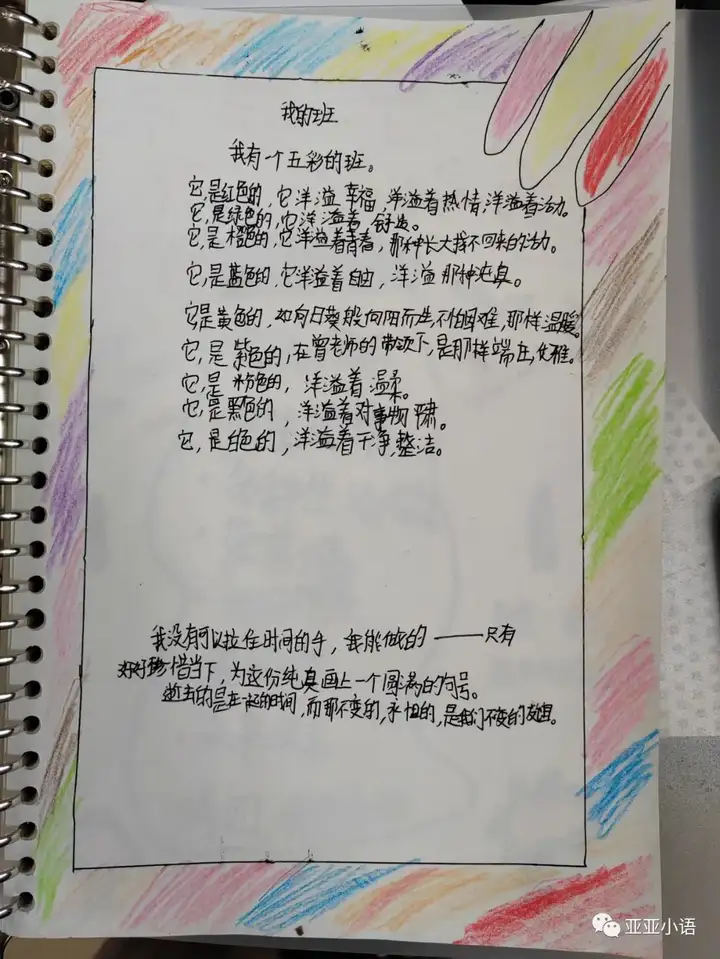 我的班
我有一个五彩的班。
它,是红色的,它洋溢幸福,洋溢着热情,洋溢着活力。
它,是绿色的,它洋溢着,舒适。
它,是橙色的,它洋溢着青春,那种长大找不回来的活力。
它,是蓝色的,它洋溢着自由,洋溢那种纯真。
它是黄色的,如向日葵般向阳而生,不怕困难,那样温暖。
它,是紫色的,在曾老师的带领下,是那样端庄,优雅。
它,是粉色的,洋溢着温柔。
它,是黑色的,洋溢着对事物肃。
它,是白色的,洋溢着干净,整洁。
我没有可以拉住时间的手,我能做的——只有
好好珍惜当下,为这份纯真画上一个圆满的句号。
逝去的是在一起的时间,而那不变的,永恒的,是我们不变的友谊。
亚亚小语